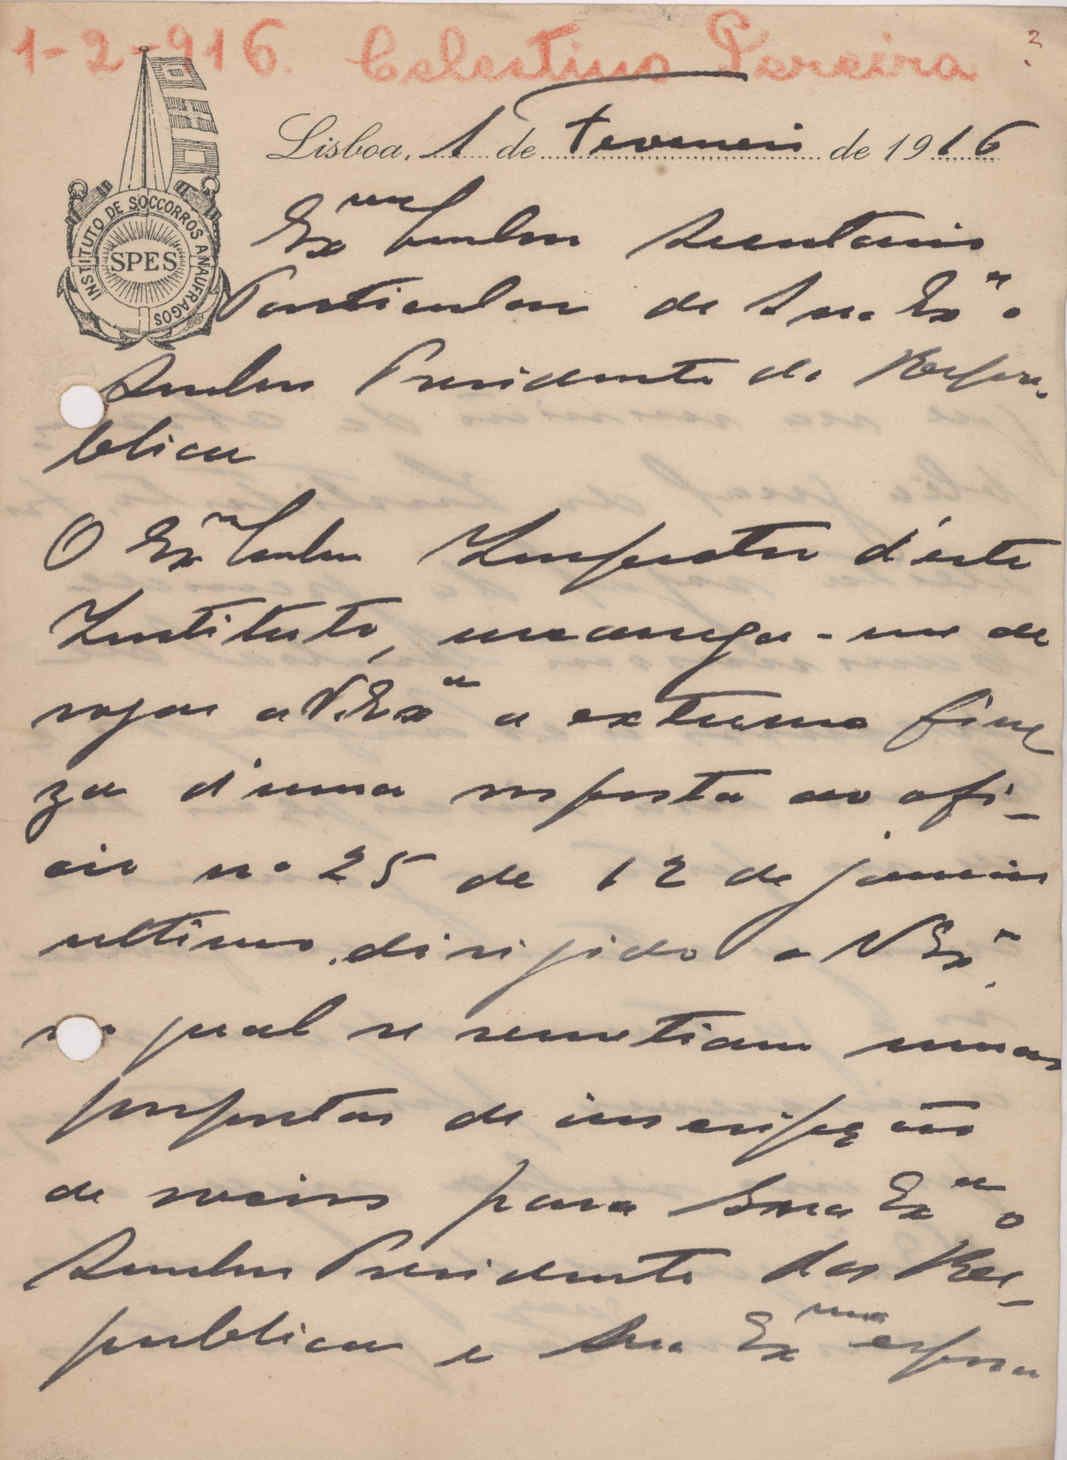 1-2-916. Celestino Pereira
2
Lisboa, 1 de Fevereiro de 1916
INSTITUTO DE SOCCORROS A NAUFRAGOS
SPES
Exmo Senhor Secretario
Particular de Sua Exa o
Senhor Presidente da Repu-
blica
O Exmo Senhor Inspector d'este
Instituto, encarrega-me de
rogar a V. Exa a extrema fine
za d'uma resposta ao ofi-
cio no 25 de 12 de janeiro
ultimo, dirigido a V Exa.
no qual se remetiam umas
propostas de inscripção
de socios para Sua Exa o
Senhor Presidente da Re-
publica e Sua Exma esposa